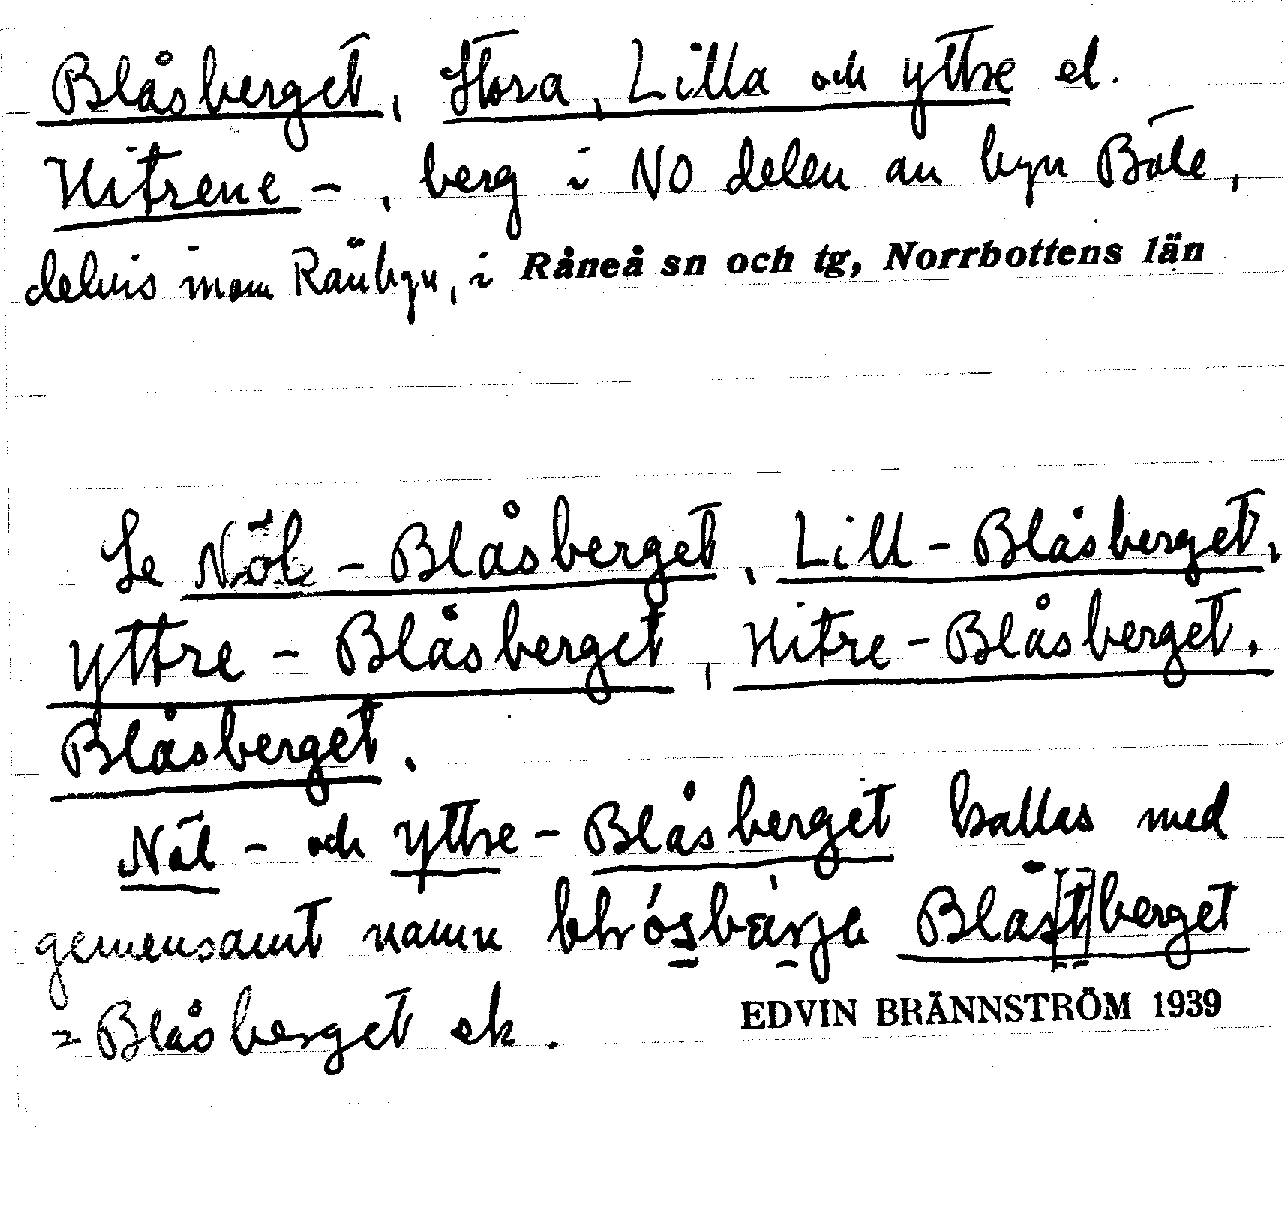 Blåsberget, Stora, Lilla och yttre el.
Hitrene -, berg i NO delen av byn Böle,
delvis inom Rånbyn, i Råneå sn och tg, Norrbottens län
Se Nöl - Blåsberget, Lill - Blåsberget,
Yttre - Blåsberget, Hitre - Blåsberget.
Blåsberget.
Nöl - och Yttre - Blåsberget kallas med
gemensamt namn Blås[t]berget
= Blåsberget ek.
EDVIN BRÄNNSTRÖM 1939